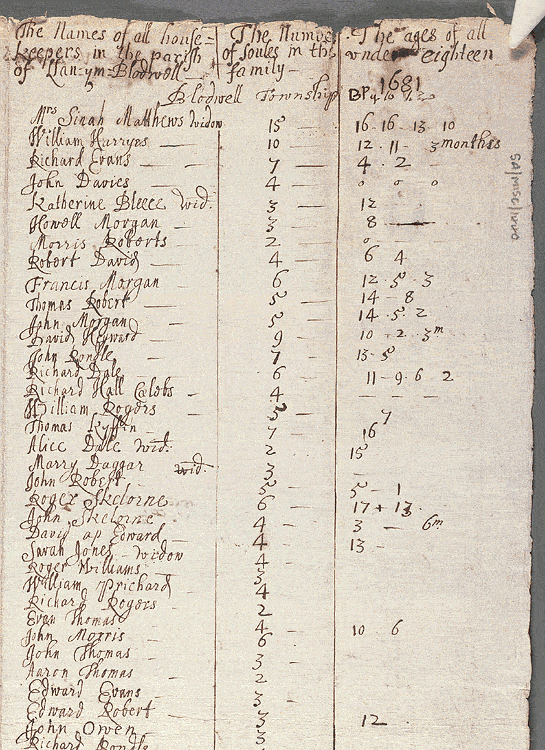 The Names of all house- The Number The ages of all
keepers in the parish of soules in the under eighteen
of Llan-ym-Blodwell family 1681
Blodwell Township
Mrs Sinah Matthews widow 15 16 16 13 10
William Harryes 10 12 11 3 months
Richard Evans 7 4 2
John Davies 4 0 0 0
Katherine Bleece wid: 3 12
Howell Morgan 3 8
Morris Roberts 2 0
Robert David 4 6 4
Francis Morgan 6 12 5 3
Thomas Robert 5 14 8
John Morgan 5 14 5 2
David Heyward 9 10 2 3m
John Rondle 7 15 5
Richard Dale 6 11 9 6 2
Richard Hall Calebs 4
William Rogers 5 7
Thomas Kyffin 7 16
Alice Dale wid: 2 15
Marry Daggar wid: 3
John Robert 5 5 1
Roger Skelorne 6 17 + 13
John Skelorne 4 3 6m
David ap Edward 4 13
Sarah Jones widow 4
Roger Williams 3
William Prichard 4
Richard Rogers 2
Evan Thomas 4
John Morris 6 10 6
John Thomas 3
Aaron Thomas 2
Edward Evans 3
Edward Robert 3
John Owen 3 12
Richard Rondle
SA/MISC/1000